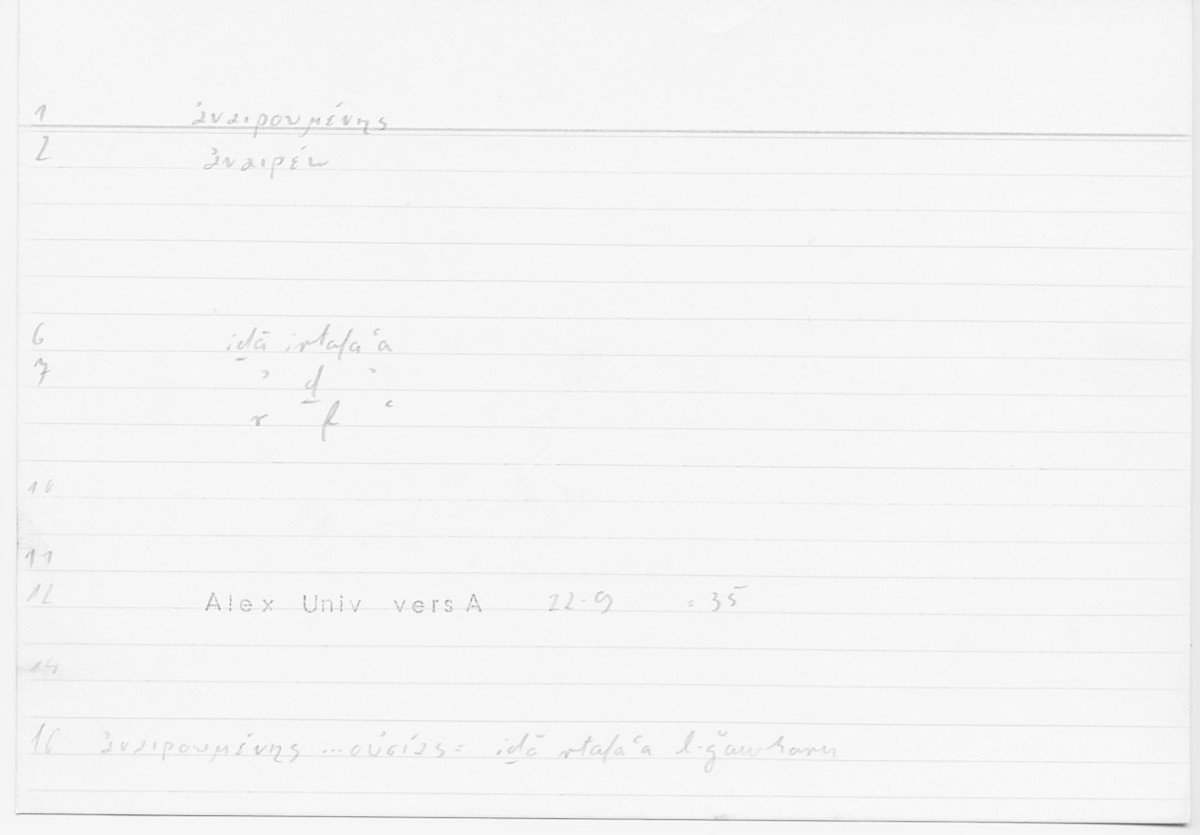 1 ἀναιρουμένης
2 ἀναιρέω
6 iḏā irtafaʿa
7 ʾ ḏ ʾ
r f ʿ
10
11
12 Alex Univ vers A 22.9 = 35
14
16 ἀναιρουμένης ... οὐσίας = iḏā rtafaʿa l-ǧawharu